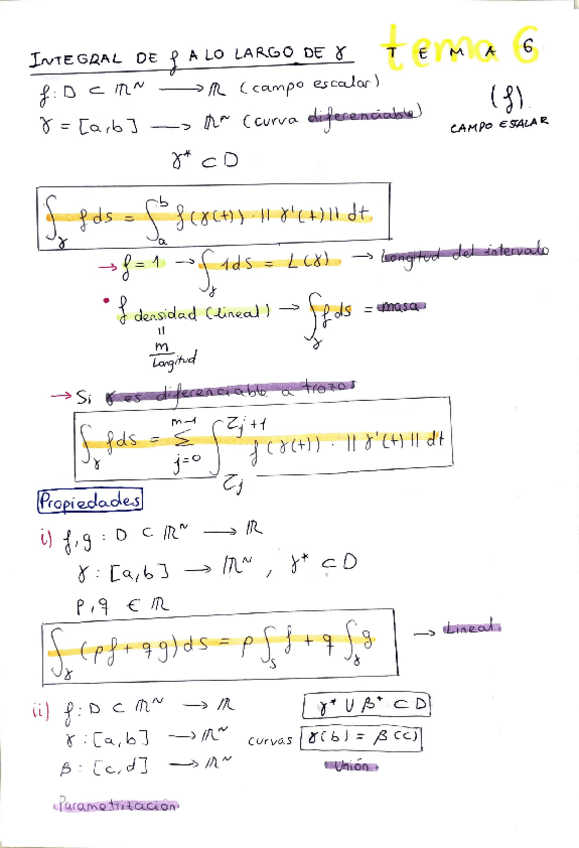 INTEGRAL DE f A LO LARGO DE γ tema 6 T E M A 6
f: D ⊂ ℝᴺ → ℝ (campo escalar)
(f)
CAMPO ESALAR
γ = [a,b] → ℝᴺ (curva diferenciable)
γ* ⊂ D
∫_γ f ds = ∫_a^b f(γ(t)) · ||γ'(t)|| dt
→ f = 1 → ∫_γ 1 ds = L(γ) → Longitud del intervalo
• f densidad (lineal) → ∫_γ f ds = masa
=
m
Longitud
→ Si γ es diferenciable a trozos
∫_γ f ds = Σ_{j=0}^{m-1} ∫_{Zj}^{Zj+1} f(γ(t)) · ||γ'(t)|| dt
Propiedades
i) f,g : D ⊂ ℝᴺ → ℝ
γ : [a,b] → ℝᴺ , γ* ⊂ D
p,q ∈ ℝ
∫_γ (pf + qg) ds = p ∫_s f + q ∫_γ g → Lineal
ii) f: D ⊂ ℝᴺ → ℝ γ* ∪ β* ⊂ D
γ : [a,b] → ℝᴺ curvas γ(b) = β(c)
β : [c,d] → ℝᴺ Unión
Parametrización